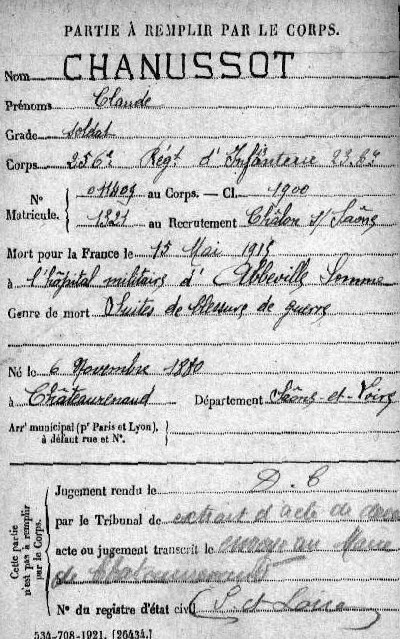 PARTIE À REMPLIR PAR LE CORPS.
Nom CHANUSSOT
Prénoms Claude
Grade soldat
Corps 256e Régt d'Infanterie
N° Matricule. { 011409 au Corps. — Cl. 1900
1321 au Recrutement Châlon s/ Saône
Mort pour la France le 15 Mai 1915
à l'hôpital militaire d'Abbeville Somme
Genre de mort Suites de blessure de guerre
Né le 6 Novembre 1880
à Châteaurenaud Département Saône-et-Loire
Arrt municipal (pr Paris et Lyon), à défaut rue et N°.
Cette partie n'est pas à remplir par le Corps.
Jugement rendu le D.C
par le Tribunal de extrait d'acte de
acte ou jugement transcrit le envoyé au Maire
de Chateaurenaud
N° du registre d'état civil (S. et Loire)
534-708-1921. [26434.]